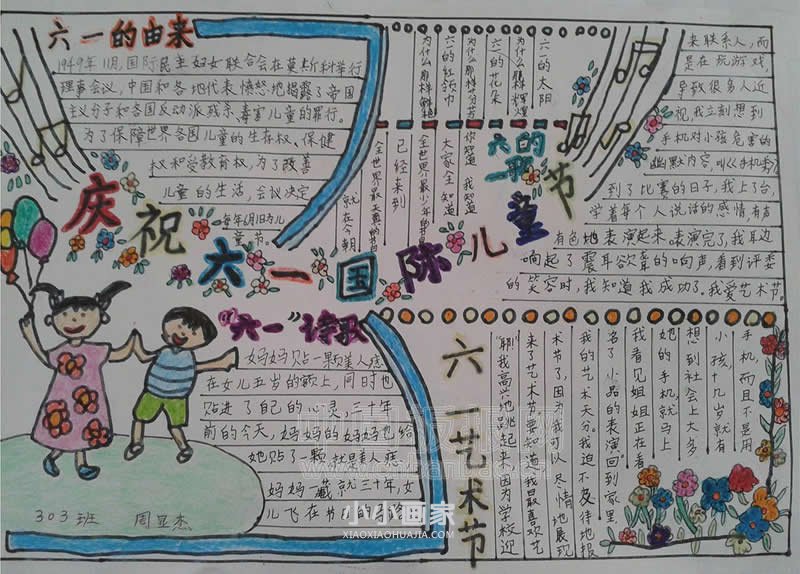 六一的由来
1949年11月,国际民主妇女联合会在莫斯科举行
理事会议,中国和各地代表愤怒地揭露了帝国
主义分子和各国反动派残杀、毒害儿童的罪行。
为了保障世界各国儿童的生存权、保健
权和受教育权,为了改善
儿童的生活,会议决定
每年6月1日为儿
童节。
庆祝六一国际儿童节
六一的太阳
为什么那样辉煌
六一的花朵
为什么那样芬芳
六一的红领巾
为什么那样鲜艳
六一的歌
你知道 我知道
大家全知道
全世界最少年的节日
已经来到
全世界最儿童的节日
就在今朝
"六一"诗歌
妈妈贴一颗美人痣
在女儿五岁的额上,同时也
贴进了自己的心灵,三十年
前的今天,妈妈的妈妈也给
她贴了一颗 就是美人痣
妈妈一藏就三十年,女
儿飞在节日的
303班 周显杰
六一艺术节
啊!我高兴地跳起来,因为学校迎
来了艺术节,要知道我最喜欢艺
术节了,因为我可以尽情地展现
我的艺术天分。我迫不及待地报
名了小品的表演。回到家里,
我看见姐姐正在看
她的手机,就马上
想到社会上大多
小孩,十几岁就有
手机,而且不是用
来联系人,而
是在玩游戏,
导致很多人近
视,我立刻想到
手机对小孩危害的
幽默内容,叫《手机秀》
到了比赛的日子,我上了台,
学着每个人说话的感情有声
有色地表演起来,表演完了,我耳边
响起了震耳欲聋的响声,看到评委
的笑容时,我知道我成功了。我爱艺术节。
小小画家
XIAOXIAOHUAJIA.COM